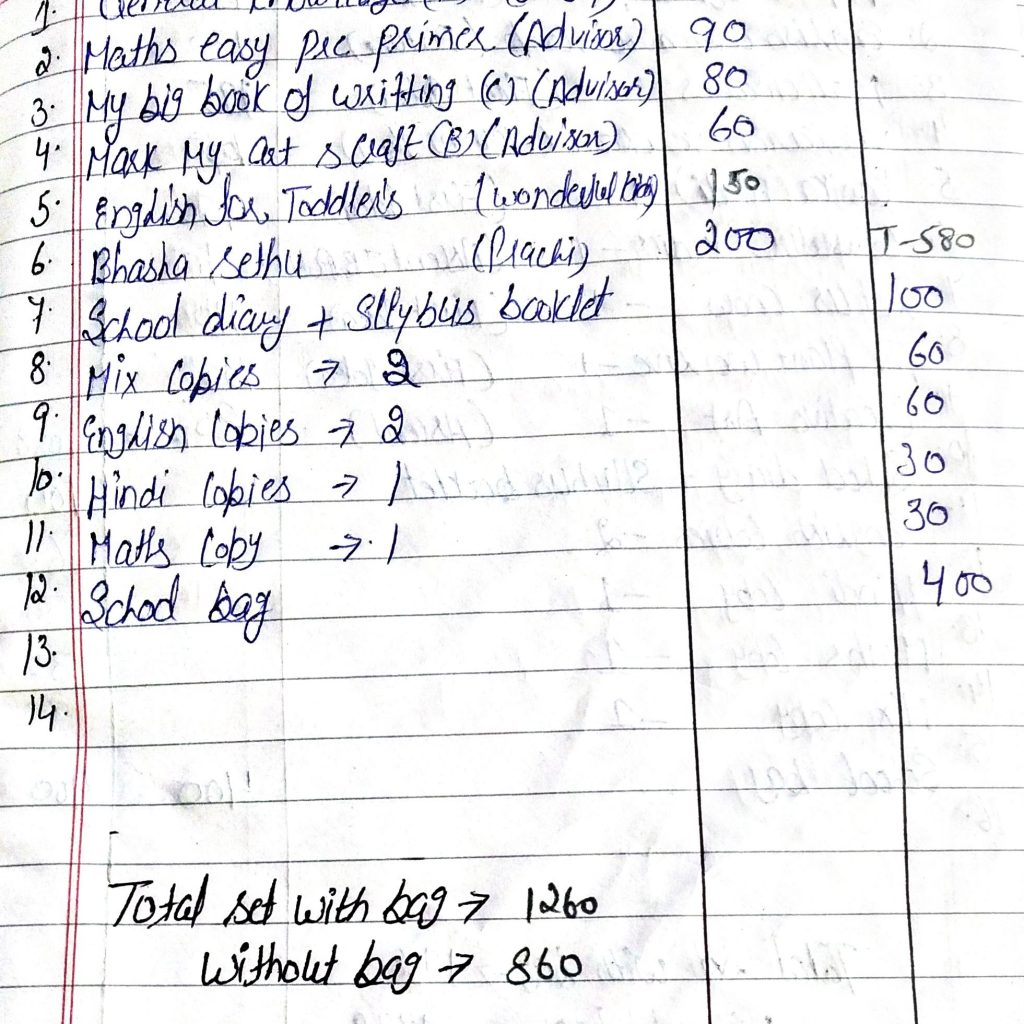 1. General Knowledge
2. Maths easy pre primer (Advisor) 90
3. My big book of writting (C) (Advisor) 80
4. Mark My art & craft (B) (Advisor) 60
5. English for Toddler's (wonderful big) 150
6. Bhasha sethu (Prachi) 200 T-580
7. School diary + Sllybus booklet 100
8. Mix Copies → 2 60
9. English Copies → 2 60
10. Hindi Copies → 1 30
11. Maths Copy → 1 30
12. School bag 400
13.
14.
Total set with bag → 1260
without bag → 860